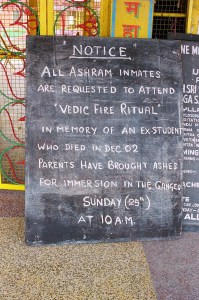 "NOTICE"
ALL ASHRAM INMATES
ARE REQUESTED TO ATTEND
"VEDIC FIRE RITUAL"
IN MEMORY OF AN EX-STUDENT
WHO DIED IN DEC 02
PARENTS HAVE BROUGHT ASHES
FOR IMMERSION IN THE GANGES
SUNDAY (25TH)
AT 10 A.M.